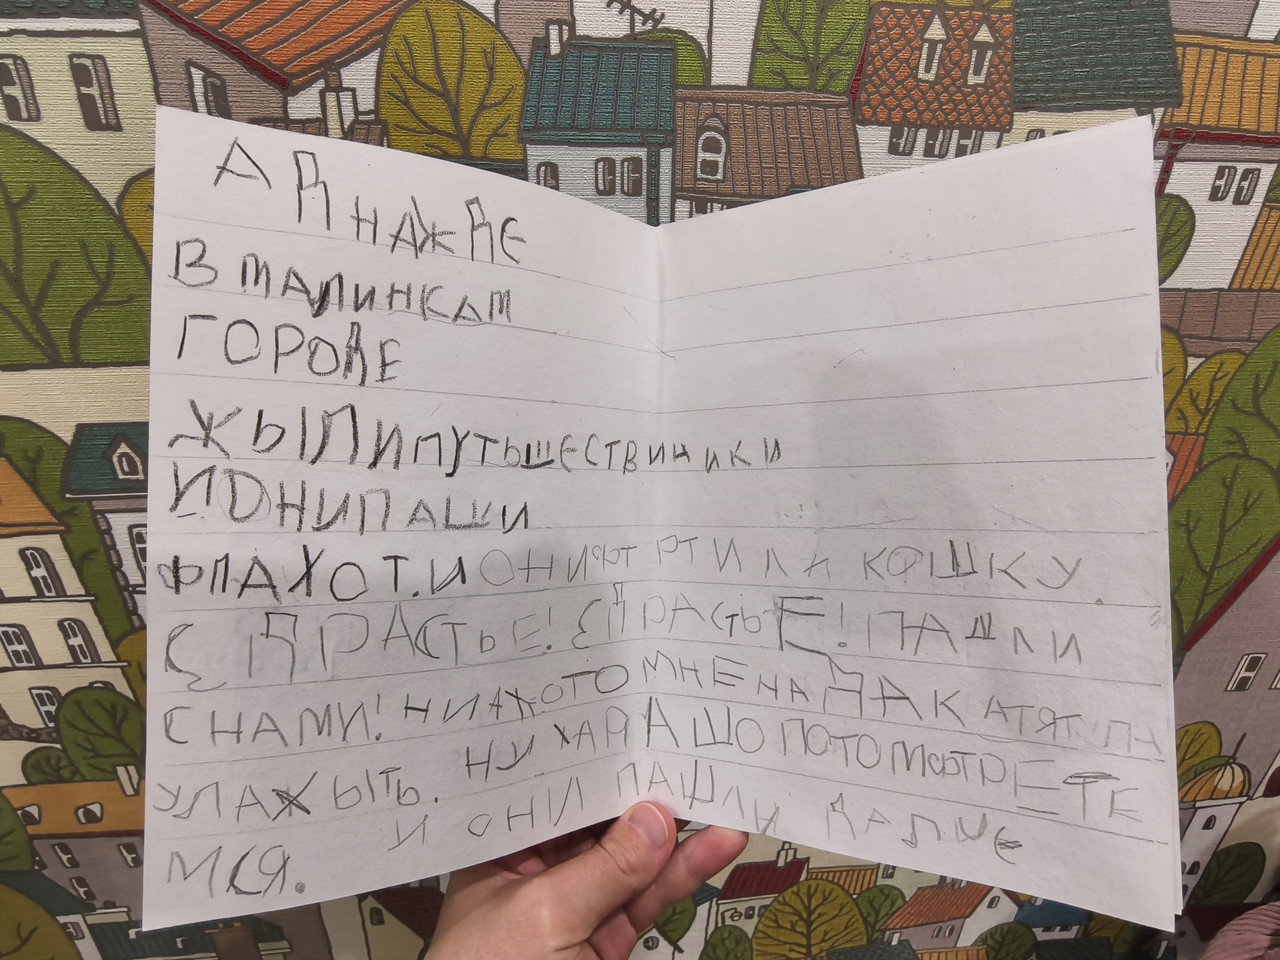 АДНАЖДЕ
В МАЛИНКАМ
ГОРОДЕ
ЖЫЛИПУТЬШЕСТВИНИКИ
ИОНИПАШИ
ФПАХОТ.ИОНИФТРТИЛИ КОШКУ.
ЗДРАСТЬЕ! ЗДРАСТЬЕ! ПАШЛИ
СНАМИ! НИАЖОТОМНЕНАДАК АТЯТ ПА
УЛАЖЫТЬ. НУ ХАРАШО ПОТОМФТРЕТЕ
МСЯ. И ОНИ ПАШЛИ ДАЛШЕ